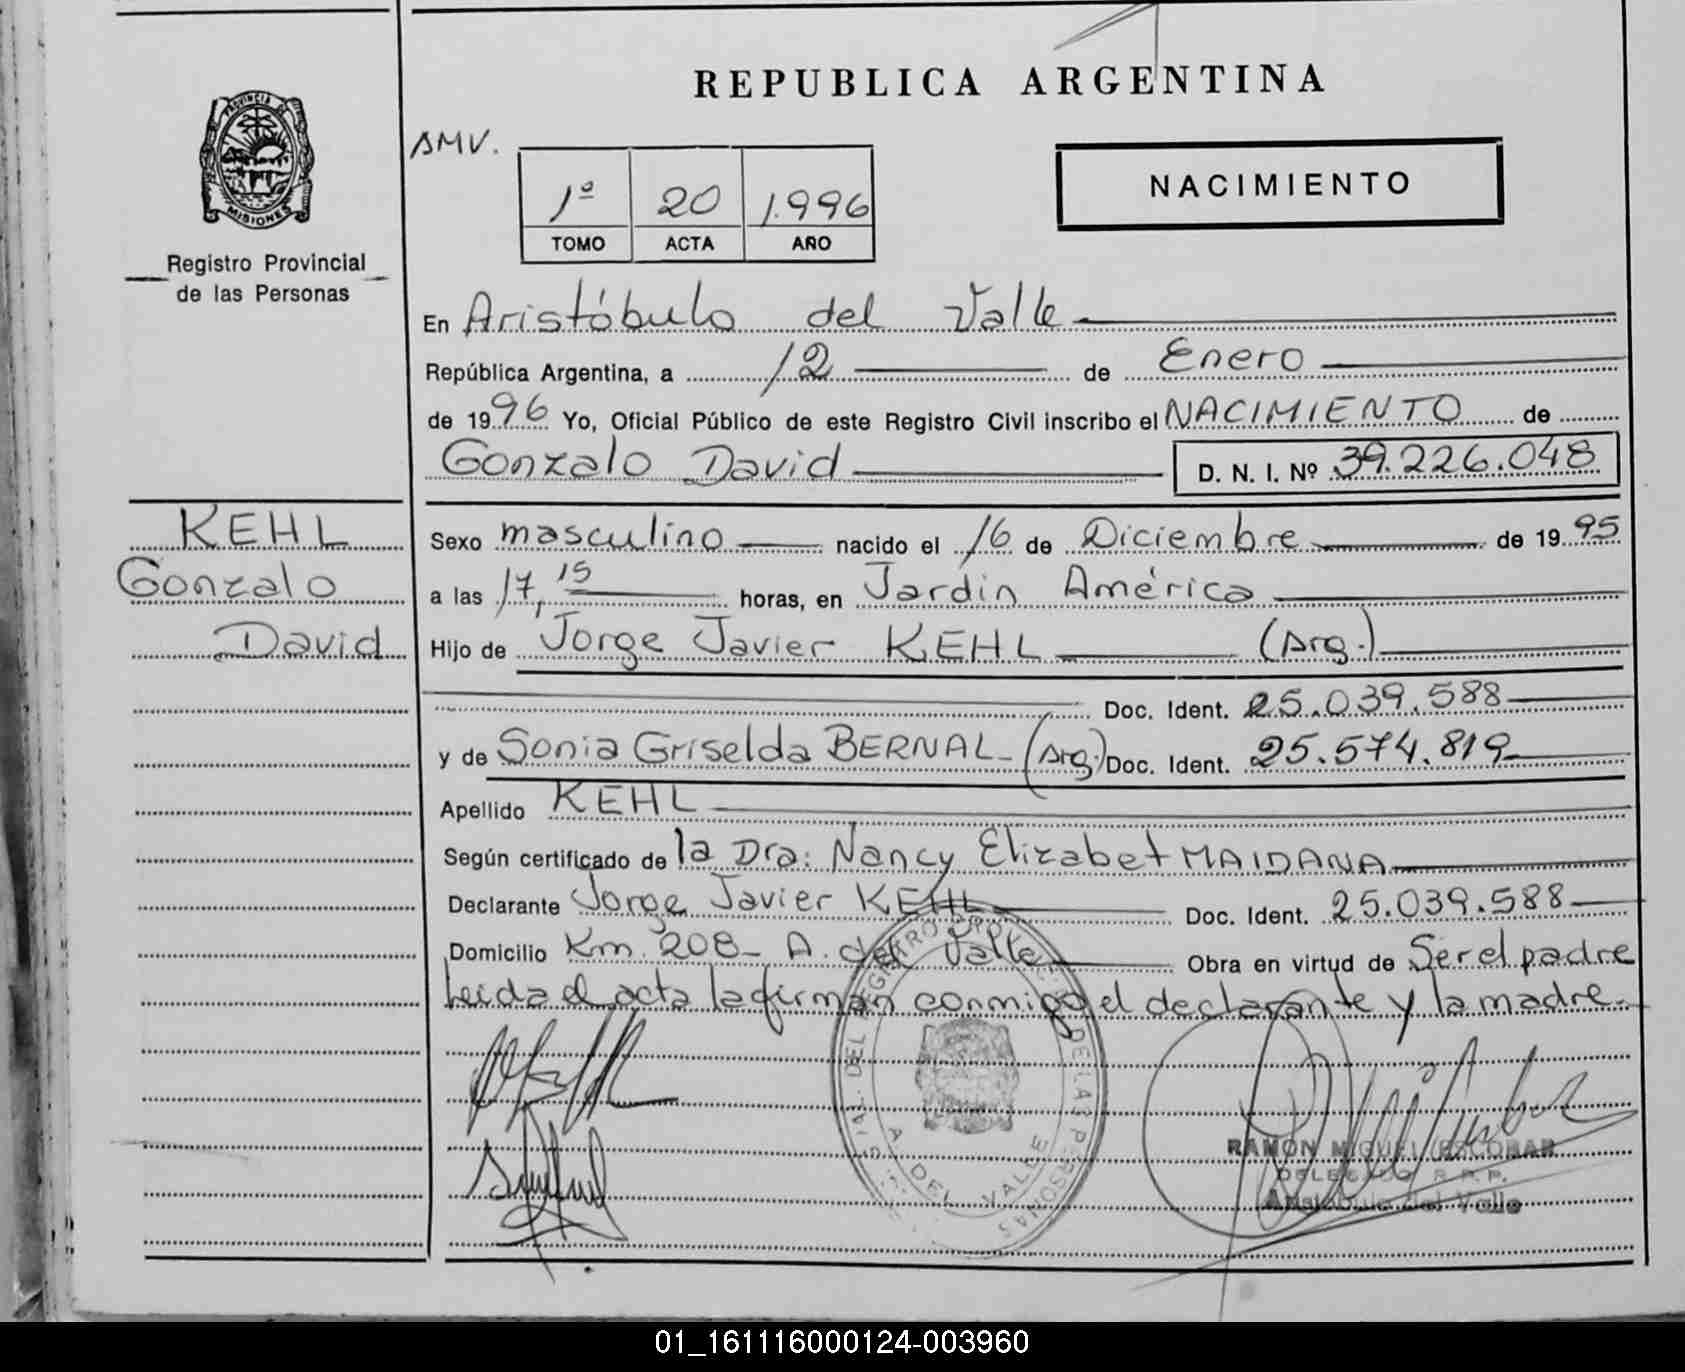 REPUBLICA ARGENTINA
PROVINCIA DE
MISIONES
Registro Provincial
de las Personas
AMV.
1º 20 1.996
TOMO ACTA AÑO
NACIMIENTO
En Aristóbulo del Valle
República Argentina, a 12 de Enero
de 1996 Yo, Oficial Público de este Registro Civil inscribo el NACIMIENTO de
Gonzalo David D. N. I. Nº 39.226.048
KEHL
Gonzalo
David
Sexo masculino nacido el 16 de Diciembre de 1995
a las 17,15 horas, en Jardin América
Hijo de Jorge Javier KEHL (Arg.)
Doc. Ident. 25.039.588
y de Sonia Griselda BERNAL (Arg.) Doc. Ident. 25.574.819
Apellido KEHL
Según certificado de la Dra: Nancy Elizabet MAIDANA
Declarante Jorge Javier KEHL Doc. Ident. 25.039.588
Domicilio Km. 208 - A. del Valle Obra en virtud de Ser el padre
Leida el acta la firman conmigo el declarante y la madre.
DEL REGISTRO PROV. DE LAS PERSONAS
A. DEL VALLE
RAMON MIGUEL ESCOBAR
DELEGADO R.P.P.
Aristobulo del Valle
01_161116000124-003960